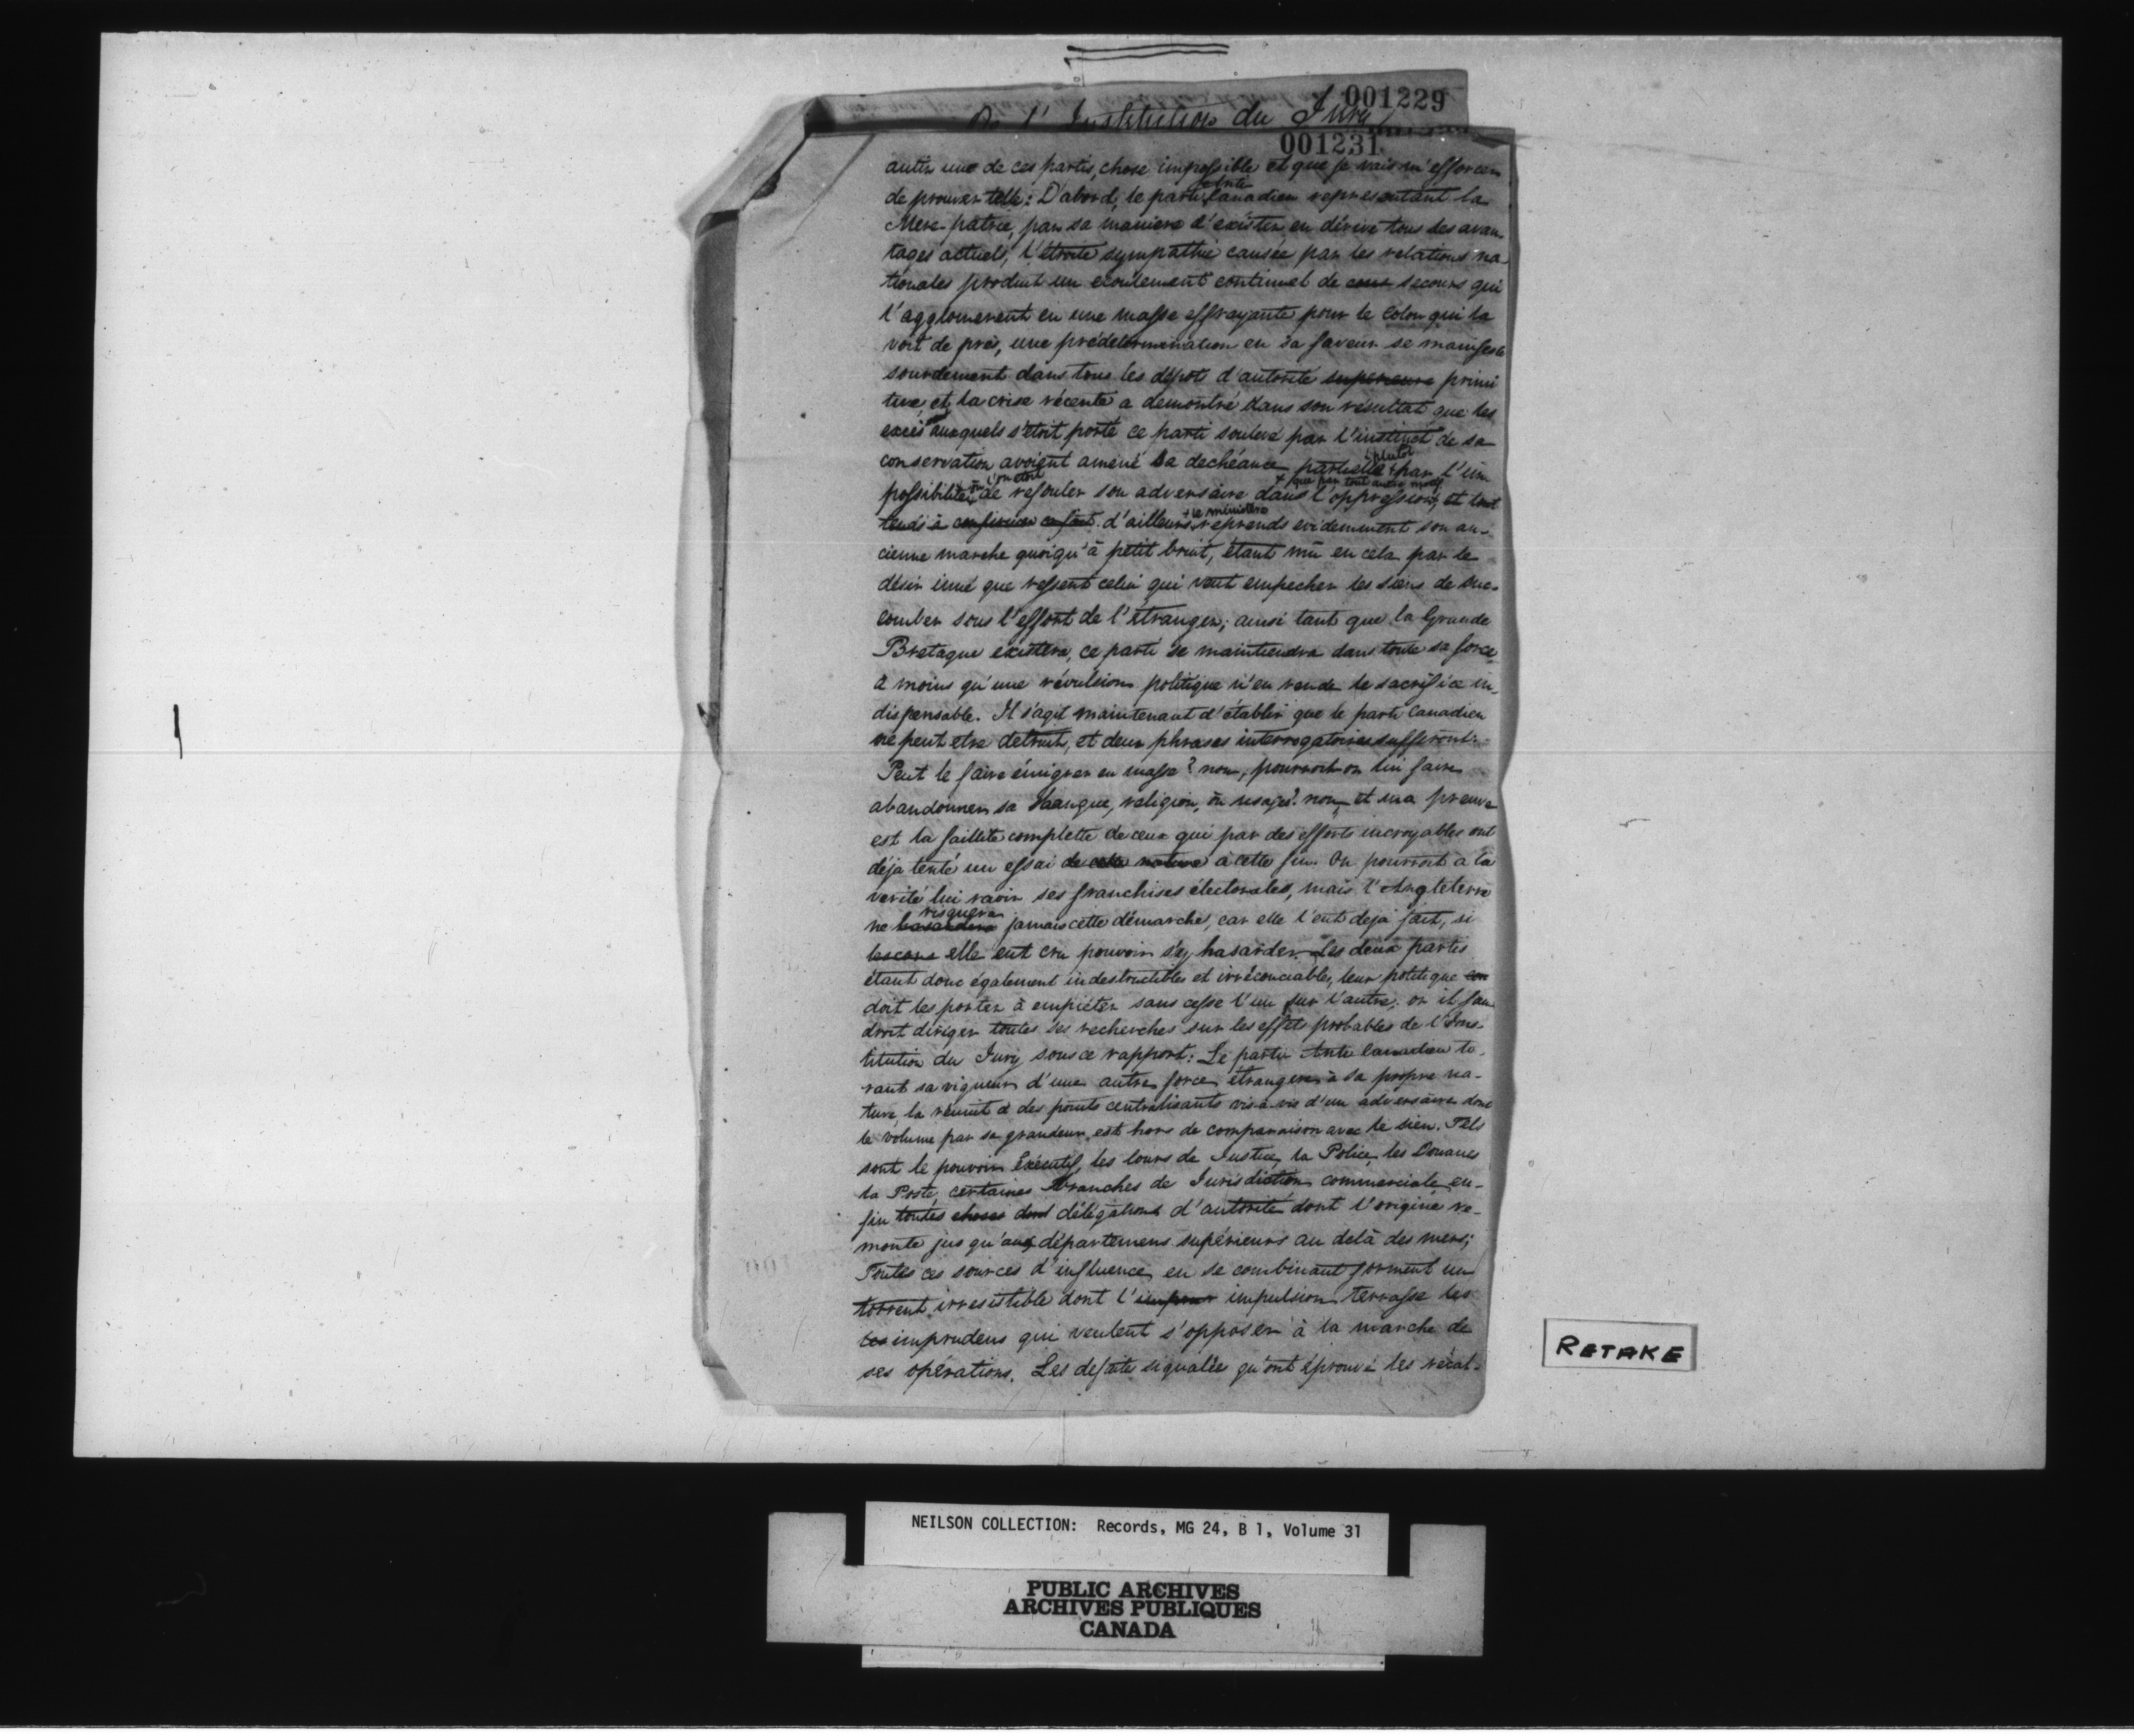 001229
De l'Institution du Jury
001231
antir une de ces partis, chose impossible et que je vais m'efforcer
de prouver telle: D'abord, le parti Anti Canadien representant la
Mere-patrie, par sa maniere d'exister en dérive tous ses avan-
tages actuels, l'étroite sympathie causée par les relations na-
tionales produit un ecoulement continuel de secours qui
s'agglomerent en une masse effrayante pour le Colon qui la
voit de près, une prédétermination en sa faveur se manifeste
sourdement dans tous les dépots d'autorité superieure primi
tive, et la crise récente a demontré dans son résultat que les
excès auxquels s'étoit porté ce parti soulevé par l'instinct de sa
conservation avoient amené sa dechéance partielle + plutot par l'im
possibilité où l'on étoit de refouler son adversaire dans l'oppression, + que par tout autre motif et tout
tends à confirmer ce fait. d'ailleurs + le ministère reprends evidemment son an-
cienne marche quoiqu'à petit bruit, étant mû en cela par le
désir inné que ressent celui qui veut empecher les siens de suc-
comber sous l'effort de l'étranger; ainsi tant que la Grande
Bretagne existera, ce parti se maintiendra dans toute sa force
à moins qu'une révulsion politique n'en rende le sacrifice in-
dispensable. Il s'agit maintenant d'établir que le parti Canadien
ne peut etre detruit, et deux phrases interrogatoires suffiront:
Peut le faire émigrer en masse? non, pourroit-on lui faire
abandonner sa langue, religion, ou usages? non, et ma preuve
est la faillite complette de ceux qui par des efforts incroyables ont
déja tenté un essai de cette nature à cette fin. On pourroit à la
verité lui ravir ses franchises électorales, mais l'Angleterre
ne hasardera risquera jamais cette démarche, car elle l'eut deja fait, si
elle eut cru pouvoir s'y hasarder. Les deux partis
étant donc également indestructibles et irréconciables, leur politique
doit les porter à empiéter sans cesse l'un sur l'autre; or il fau
droit diriger toutes ses recherches sur les effets probables de l'Ins-
titution du Jury sous ce rapport: Le parti Anti Canadien ti-
rant sa vigueur d'une autre force étrangere à sa propre na-
ture, la réunit à des points centralisants vis-à-vis d'un adversaire dont
le volume par sa grandeur est hors de comparaison avec le sien. Tels
sont le pouvoir Exécutif, les Cours de Justice, la Police, les Douanes
la Poste, certaines branches de Jurisdiction commerciale, en-
fin toutes choses dont délégations d'autorité dont l'origine re-
monte jusqu'aux départemens supérieurs au delà des mers;
Toutes ces sources d'influence en se combinant forment un
torrent irresistible dont l'impulsion terrasse les
les imprudens qui veulent s'opposer à la marche de
ses opérations. Les defaites signalées qu'ont éprouvé les récal-
RETAKE
NEILSON COLLECTION: Records, MG 24, B 1, Volume 31
PUBLIC ARCHIVES
ARCHIVES PUBLIQUES
CANADA